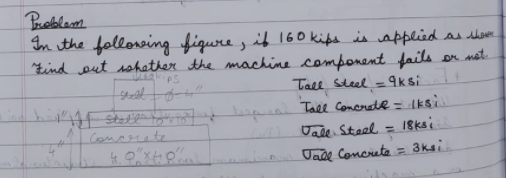 Problem
In the following figure, if 160 kips is applied as shown
Find out whether the machine component fails or not.
Tall Steel = 9ksi
Tall Concrete = 1ksi
σall Steel = 18ksi
σall Concrete = 3ksi
Steel
Steel
Concrete
40"x40"